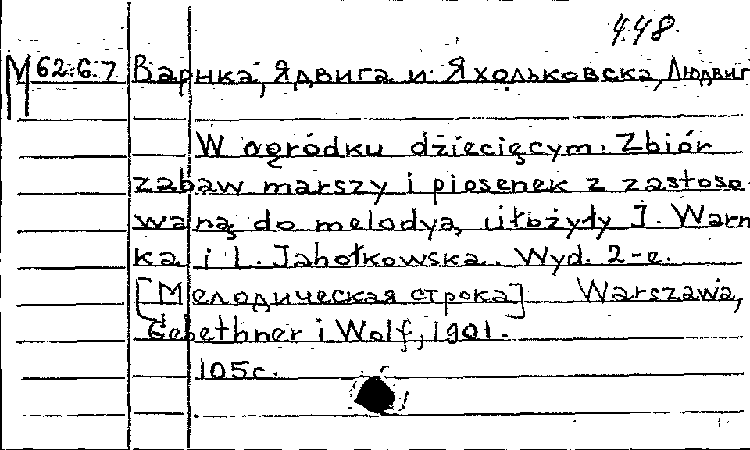 448.
М 62.6.7 Варнка, Ядвига и Яхольковска, Людвиг
W ogródku dziecięcym. Zbiór
zabaw marszy i piosenek z zastoso
waną do melodyą, ułożyły J. Warn
ka i L. Jahołkowska. Wyd. 2-e.
[Мелодическая строка] Warszawa,
Gebethner i Wolf, 1901.
105c.